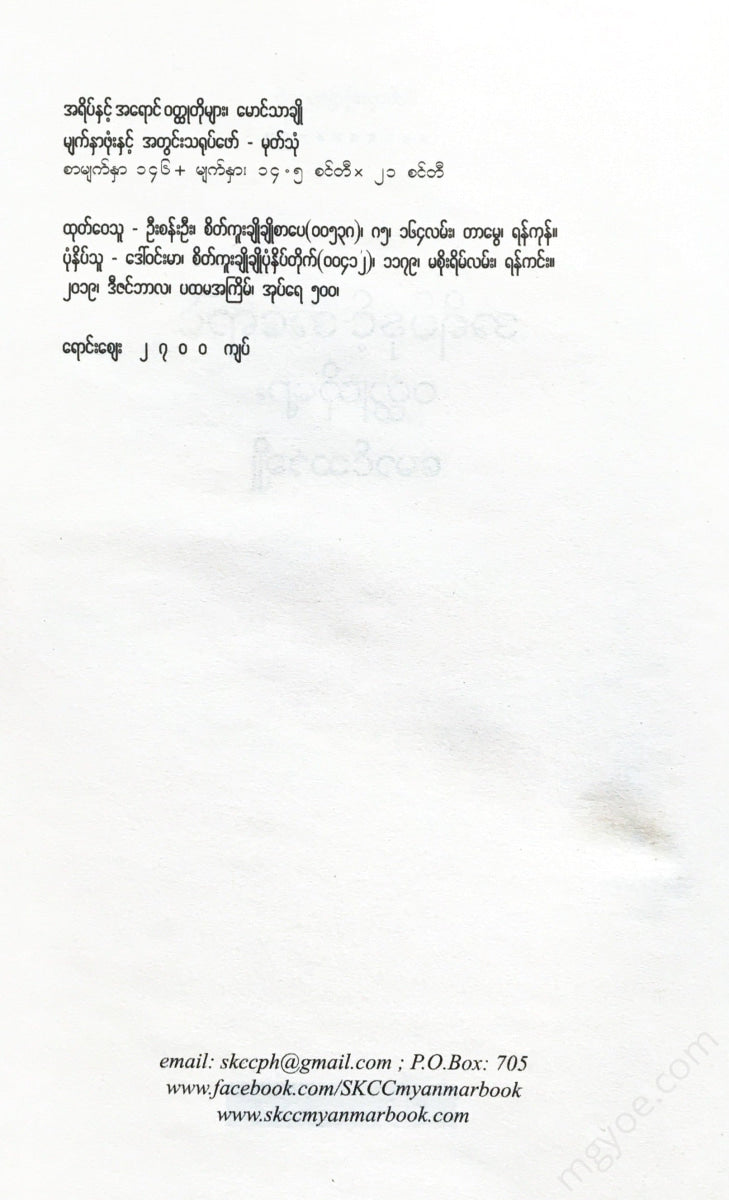 အရိပ်နှင့် အရောင် ဝတ္ထုတိုများ၊ မောင်သာချို
မျက်နှာဖုံးနှင့် အတွင်းသရုပ်ဖော် - မုတ်သုံ
စာမျက်နှာ ၁၄၆ + မျက်နှာ၊ ၁၄.၅ စင်တီ × ၂၁ စင်တီ
ထုတ်ဝေသူ - ဦးစန်းဦး၊ စိတ်ကူးချိုချိုစာပေ(၀၀၅၃၈)၊ ဂ၅၊ ၁၆၄လမ်း၊ တာမွေ၊ ရန်ကုန်။
ပုံနှိပ်သူ - ဒေါ်ဝင်းမာ၊ စိတ်ကူးချိုချိုပုံနှိပ်တိုက်(၀၀၄၁၂)၊ ၁၁၇၉၊ မစိုးရိမ်လမ်း၊ ရန်ကင်း။
၂၀၁၉၊ ဒီဇင်ဘာလ၊ ပထမအကြိမ်၊ အုပ်ရေ ၅၀၀၊
ရောင်းဈေး ၂ ၇ ၀ ၀ ကျပ်
email: skccph@gmail.com ; P.O.Box: 705
www.facebook.com/SKCCmyanmarbook
www.skccmyanmarbook.com
mgyoe.com